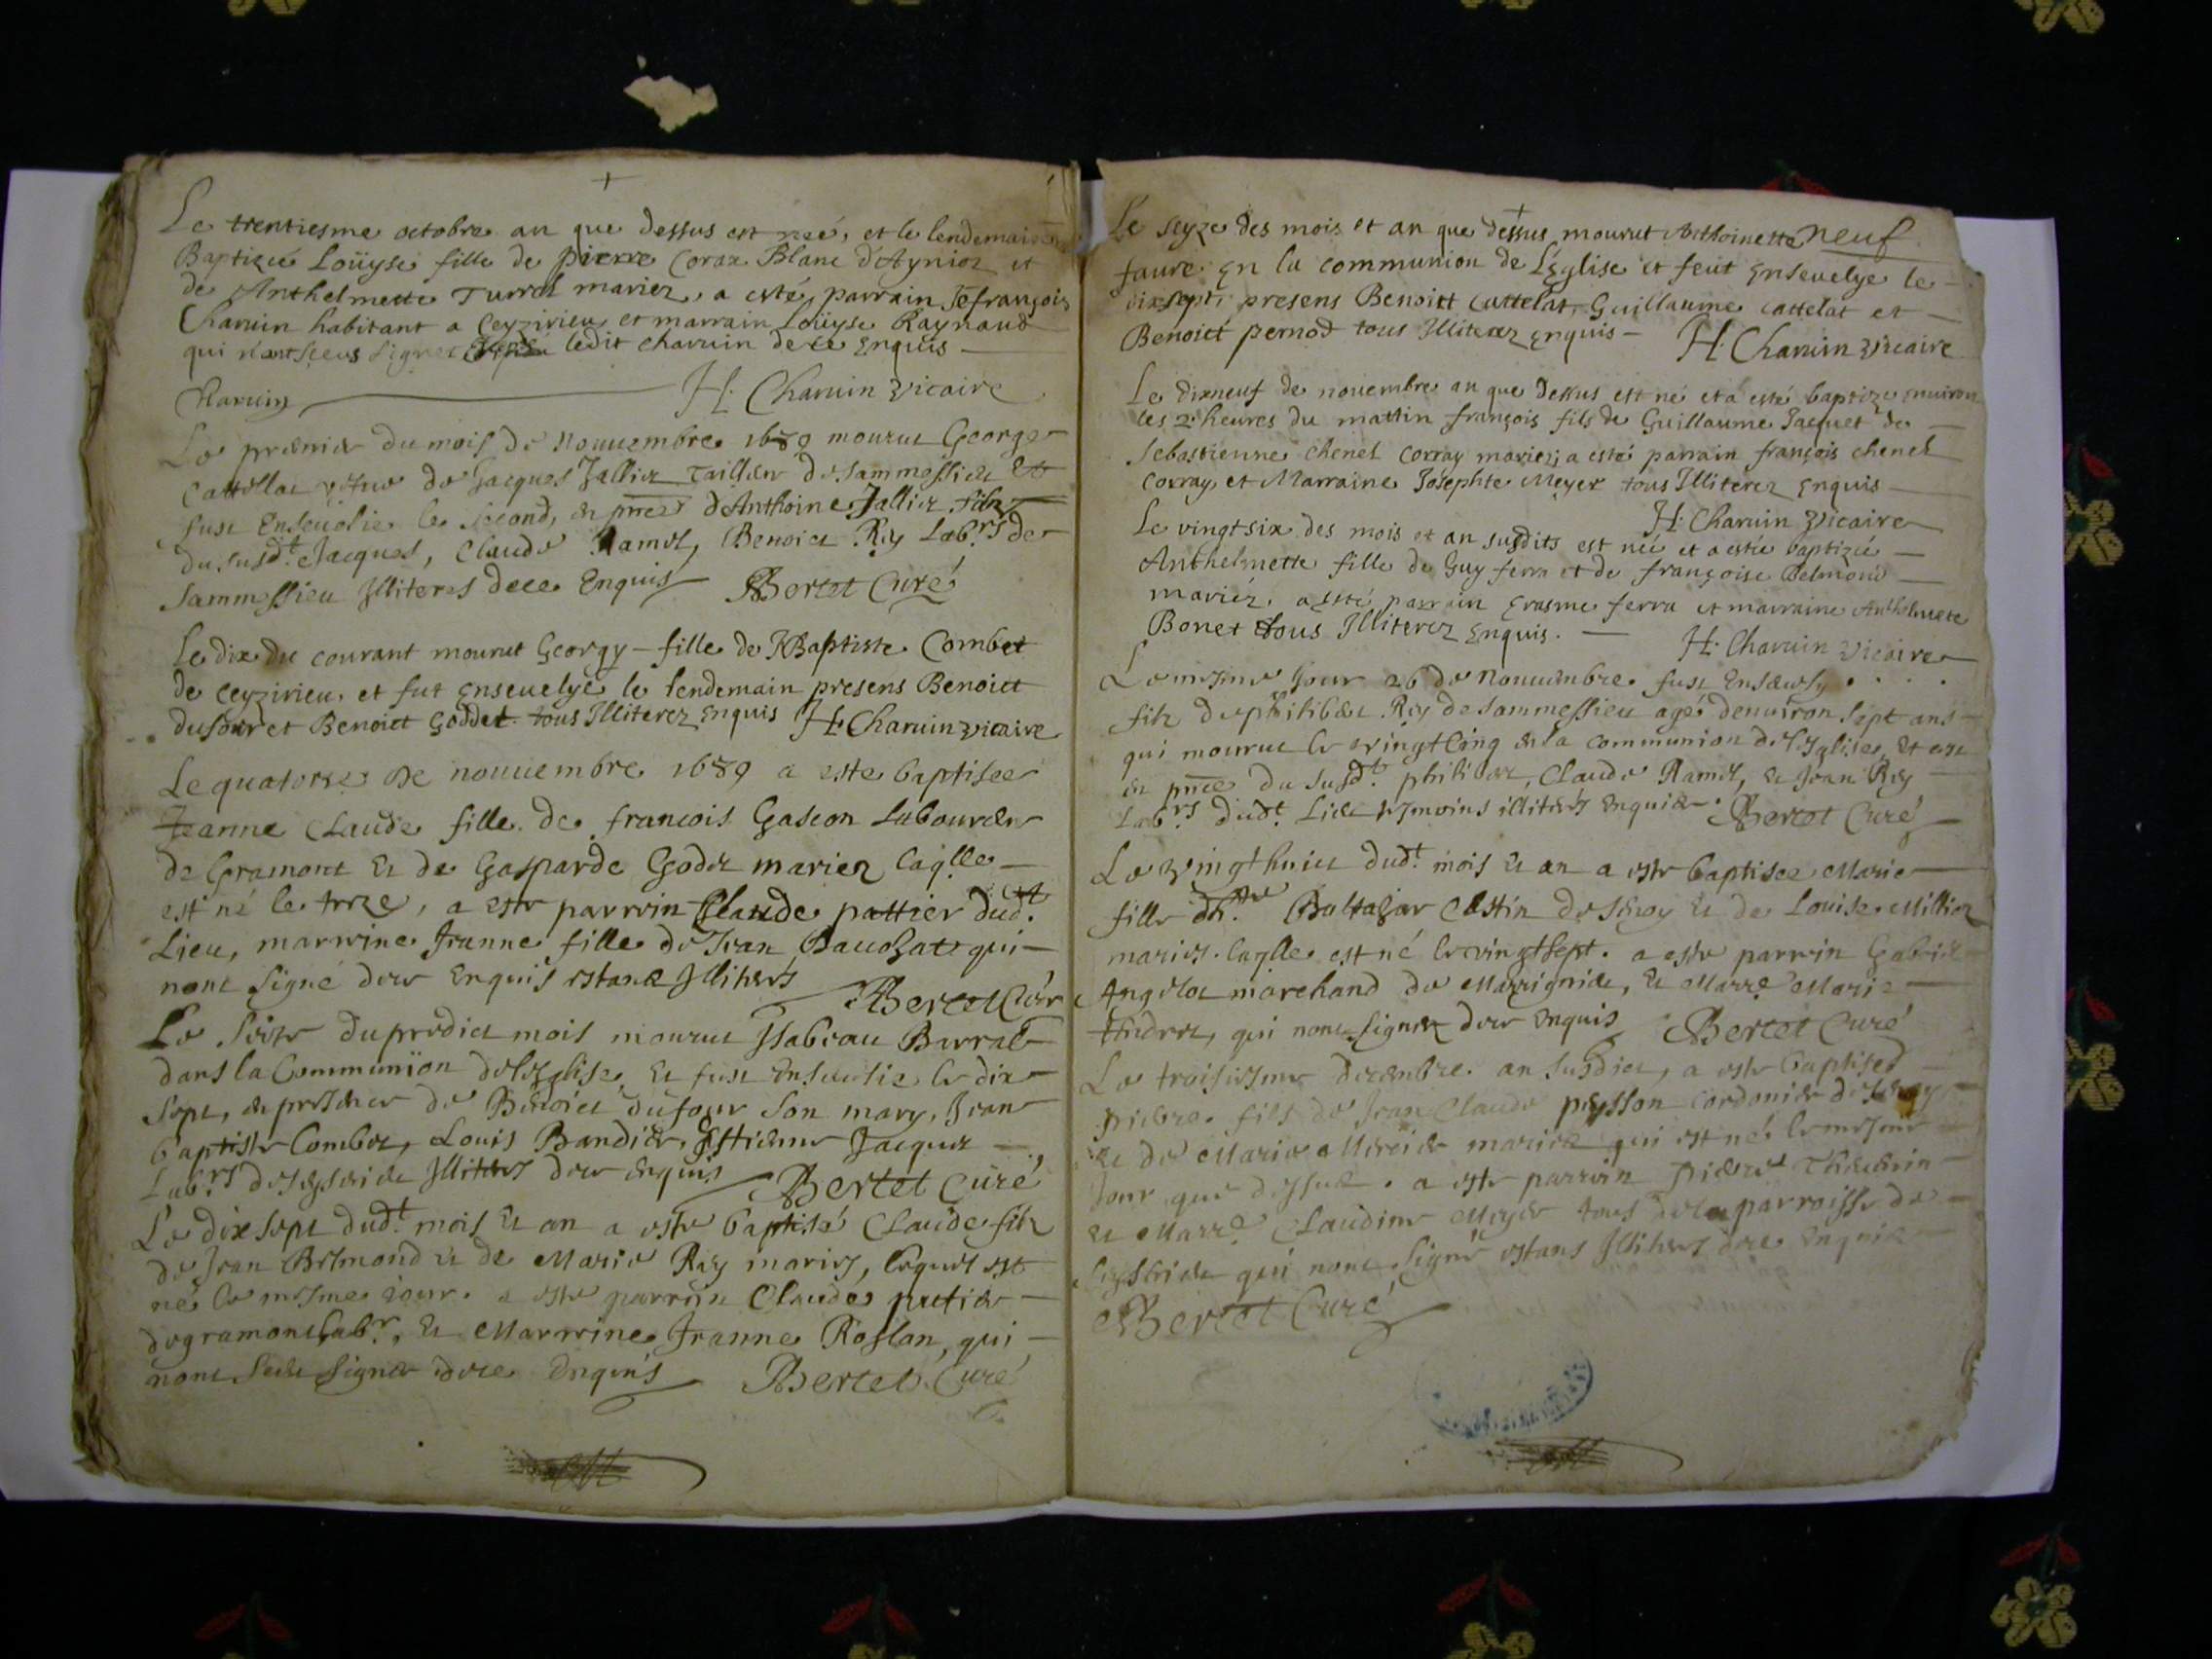 Le trentiesme octobre an que dessus est née, et le lendemain
Baptizée Loüyse fille de pierre Corax Blanc d'Aynioz et
de Anthelmette Turrel mariez, a esté parrain Jefrançois
Charuin habitant a Ceyzirieu et marrain Loüyse Raynaud
qui n'ont sceus signer ledit charuin de ce Enquis
Charuin H. Charuin vicaire
Le premier du mois de Nouuembre 1689 mourut George
Cattellat vefue de Jacques Jallier Tailleur de sammessieu Et
fust Enseuelie le second, en pnce d'Anthoine Jallier filz
du susdt Jacques, Claude Ramel, Benoict Rey Labrs de
Sammessieu Illiteres dece Enquis Bertet Curé
Le dix du courant mourut Georgy fille de JBaptiste Combet
de ceyzirieu, et fut Enseuelye le lendemain presens Benoict
dufour et Benoict Goddet tous Illiterez Enquis H. Charuin vicaire
Le quatorze De nouuembre 1689 a este baptisee
Jeanne Claude fille de francois Gascon Laboureur
de Gramont Et de Gasparde Godet mariez laqlle
est né le treze, a este parrein Claude pattier dudt
Lieu, marreine Jeanne fille de Jean qui
nont signé dece Enquis estans Illiteres Bertet Curé
Le Seize du predict mois mourut Isabeau Barral
dans la Communion de leglise, Et fust Enseuelie le dix
sept, en presence de Benoict dufour Son mary, Jean
baptiste Combet, Louis Bandier, Estienne Jacquet
Labrs de Illiteres dece Enquis Bertet Curé
Le dix sept dudt mois Et an a este baptisé Claude filz
de Jean Belmond Et de Marie Rey mariez, lequel est
né le mesme iour. a este parrein Claude patier
de gramont Labr, Et Marreine Jeanne Roslan, qui
nont sceu signer dece Enquis Bertet Curé
Le seyze des mois et an que dessus mourut Anthoinette neuf
faure En la communion de L'Eglise et feut Enseuelye le
dixsept, presens Benoict Cattelat, Guillaume Cattelat et
Benoict pernod tous Illiterez Enquis H. Charuin vicaire
Le dixneuf de nouembre an que dessus est né et a esté baptizé enuiron
les 2 heures du mattin françois fils de Guillaume Jacquet de
Sebastienne chenel Corray mariez, a esté parrain françois chenel
Corray, et Marraine Josephte Meyer tous Illiterez Enquis
H. Charuin Vicaire
Le vingtsix des mois et an susdits est née et a estée baptizée
Anthelmette fille de Guy ferra et de françoise Belmond
mariéz, a esté parrain Erasme ferra et marraine Anthelmete
Bonet tous Illiterez Enquis. H. Charuin Vicaire
Le mesme Jour 26 de Nouuembre fust Enseuely . . . .
filz de philibert Rey de Sammessieu agé denuiron sept ans
qui mourut le vingtcinq en la communion de leglise, Et ce
en pnce du susdt philibert, Claude Ramel, Et Jean Rey
Labrs dudt Lieu tesmoins illiteres enquis Bertet Curé
Le vingthuict dudt mois Et an a este baptisee Marie
fille Baltazar Costin de Et de Louise Millioz
mariez. laqlle est né le vingtsept. a este parrein Gabriel
Angelot marchand de Marrignieu, Et Marre Marie
qui nont signer dece Enquis Bertet Curé
Le troisiesme decembre an susdict, a este baptised
pierre fils de Jean Claude peysson Cordonier de
Et de Marie Mercier mariez qui est né le mesme
Jour que dessus. a este parrein pierre
Et Marre Claudine Meyer tous de la parroisse de
qui nont signé estans Illiteres dece Enquis
Bertet Curé